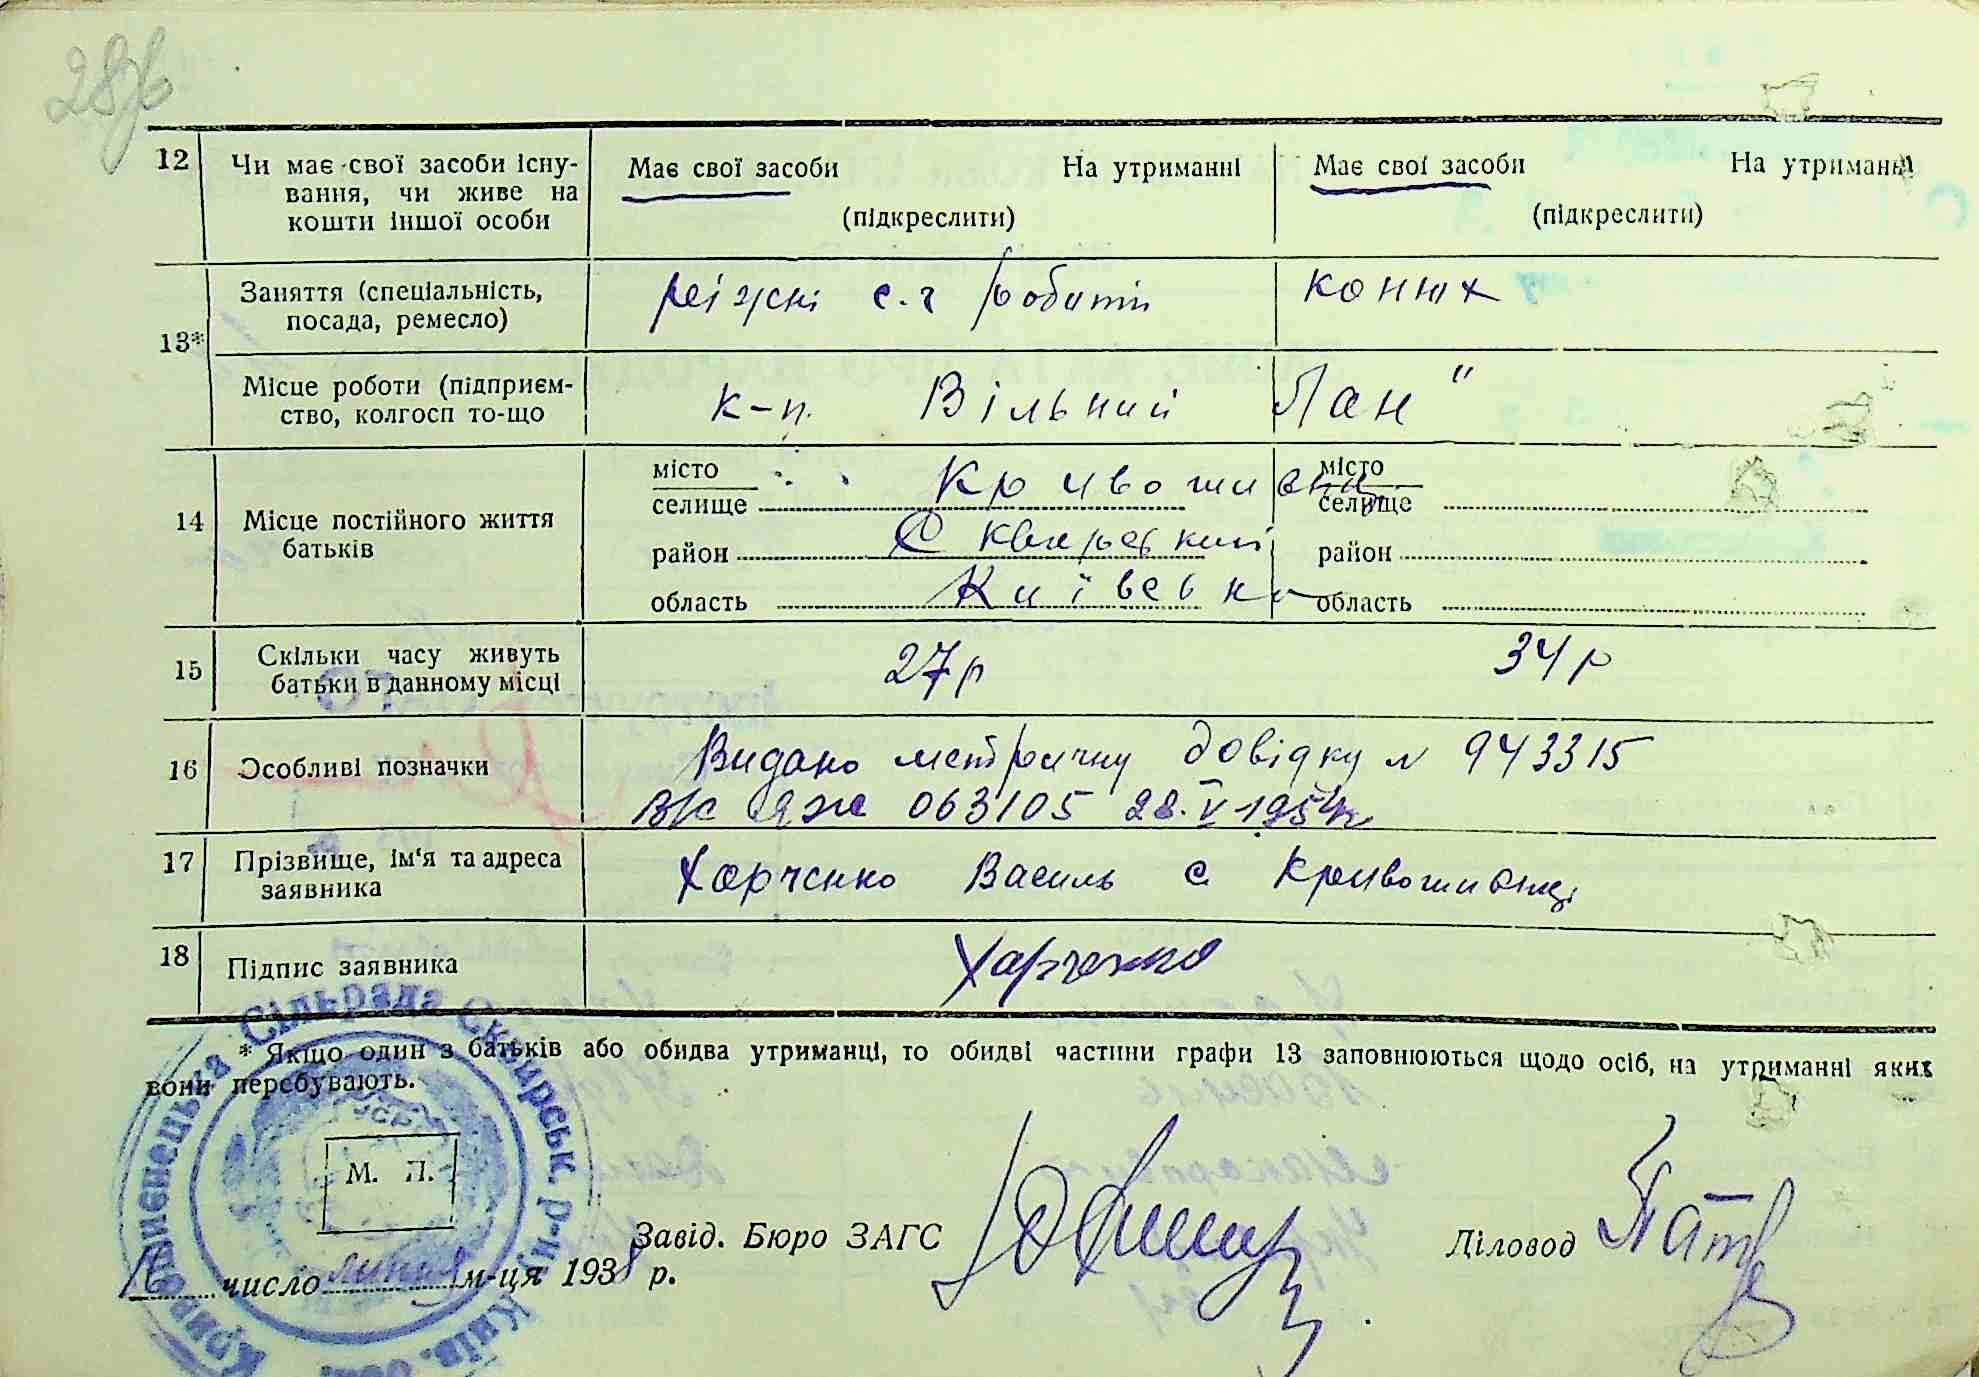 28
12 Чи має свої засоби існу-
вання, чи живе на
кошти іншої особи
Має свої засоби На утриманні
(підкреслити)
Має свої засоби На утриманні
(підкреслити)
13*
Заняття (спеціальність,
посада, ремесло)
ріжні с.г роботи
конюх
Місце роботи (підприєм-
ство, колгосп то-що
к-п. Вільний Лан"
14 Місце постійного життя
батьків
місто
селище Кривошиєнці
район Сквирський
область Київська
місто
селище
район
область
15 Скільки часу живуть
батьки в данному місці
27 р
34 р
16 Особливі позначки
Видано метричну довідку N 943315
063105 28.V-1954р
17 Прізвище, ім'я та адреса
заявника
Харченко Василь с Кривошиєнці
18 Підпис заявника
Харченко
* Якщо один з батьків або обидва утриманці, то обидві частини графи 13 заповнюються щодо осіб, на утриманні яких
вони перебувають.
Кривошиєнецька Сільрада Сквирськ. р-ну Київ. обл.
УСРР
М. П.
число липня м-ця 1938 р.
Завід. Бюро ЗАГС
Діловод